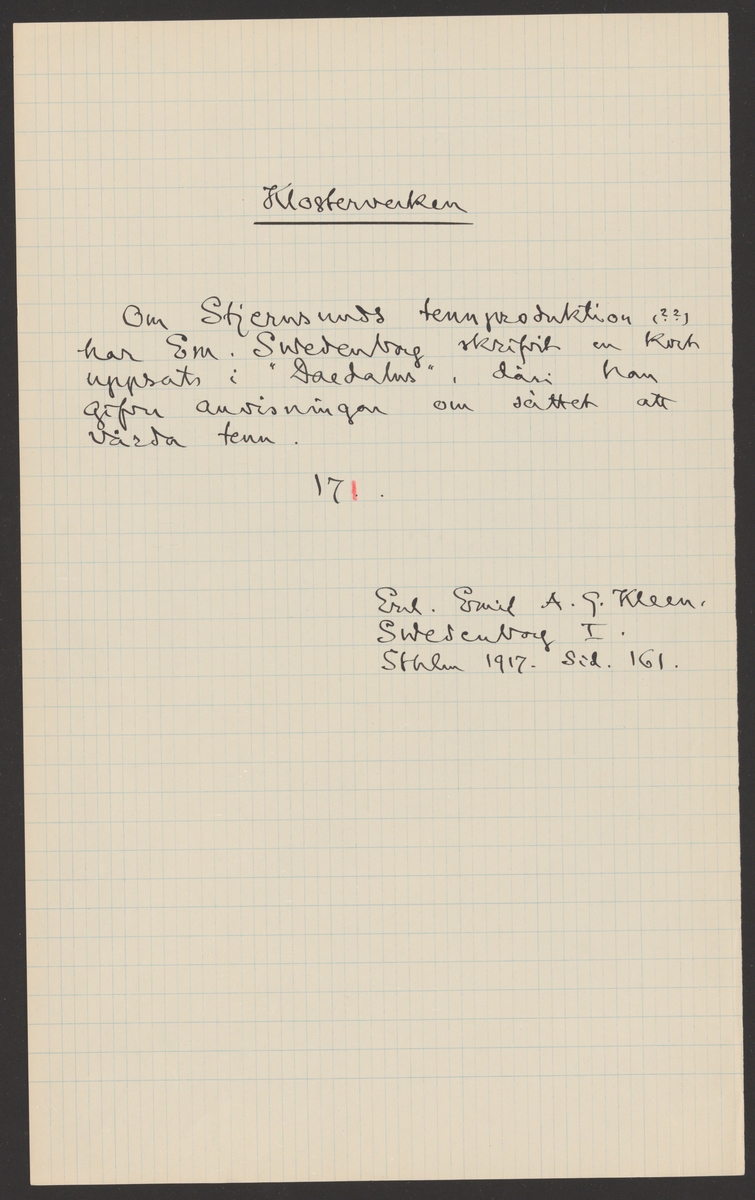 Klosterverken
Om Stjernsunds tennproduktion (??)
har Em. Swedenborg skrifvit en kort
uppsats i "Daedalus", däri han
gifver anvisningar om sättet att
vårda tenn.
171.
Enl. Emil A. G. Kleen.
Swedenborg I.
Sthlm 1917. Sid. 161.